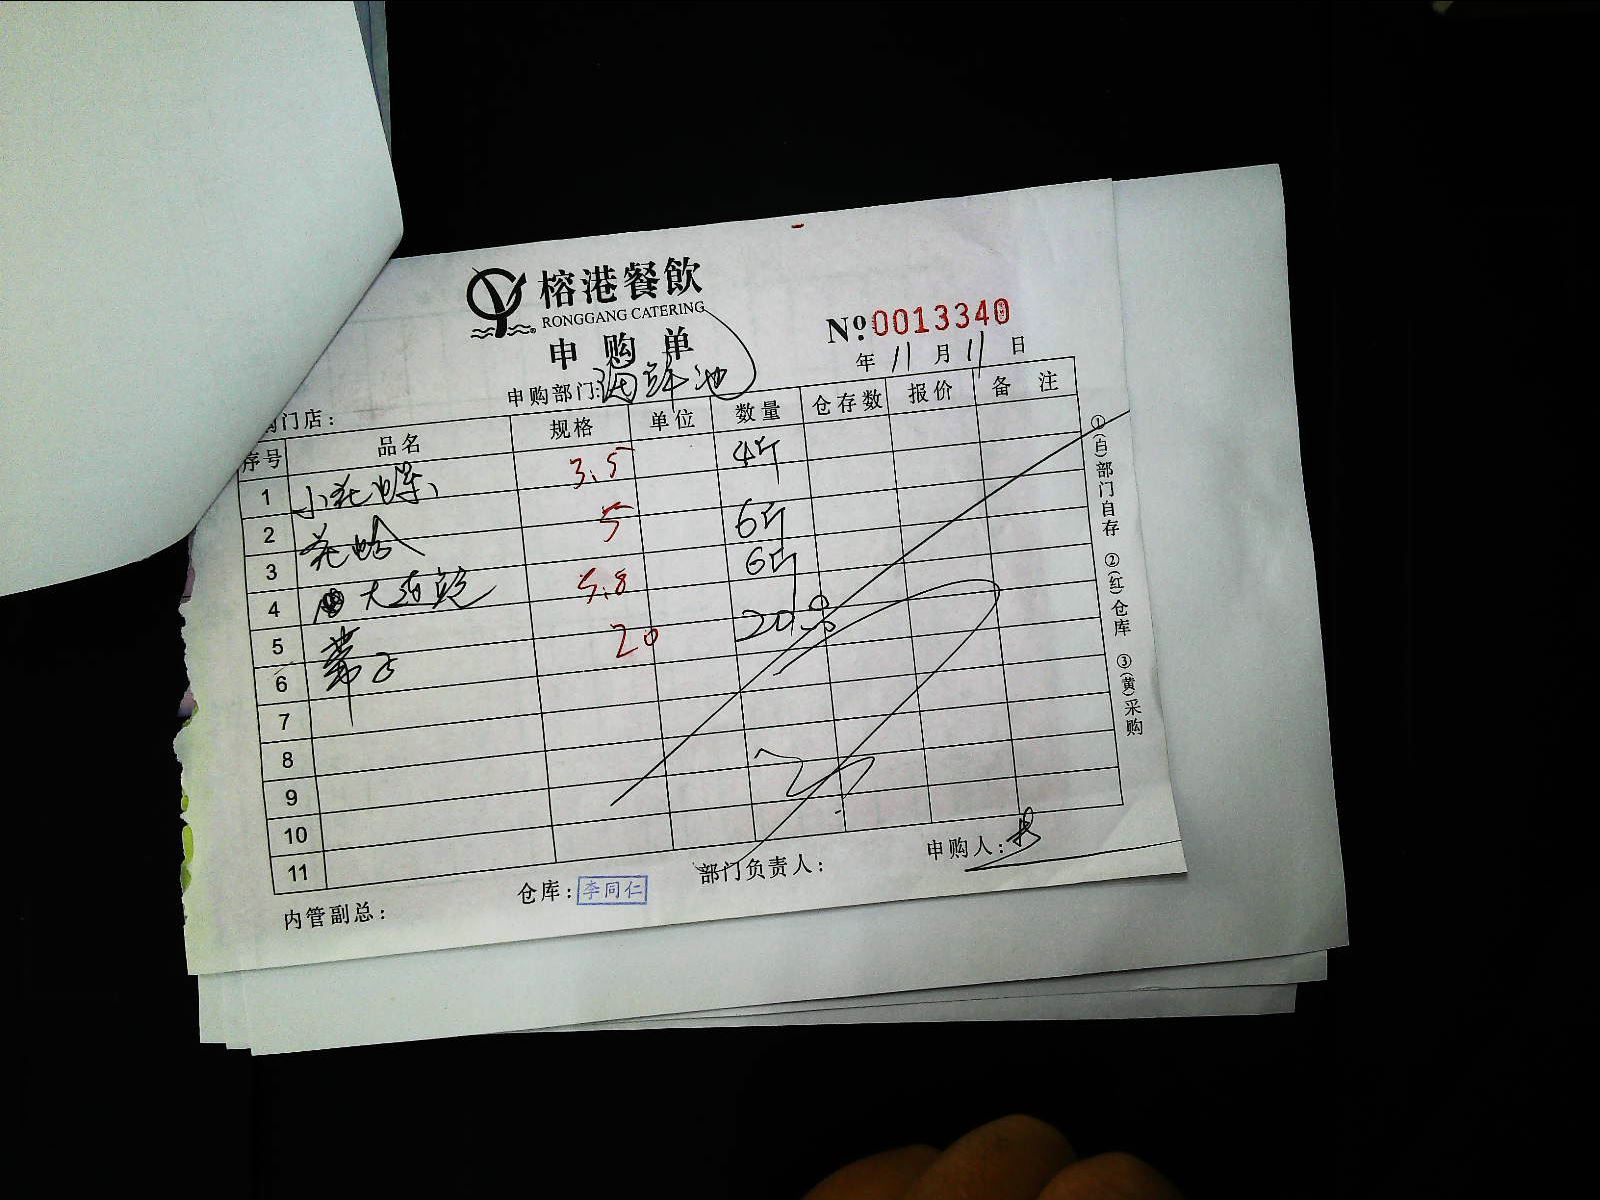 榕港餐飲
RONGGANG CATERING
申购单
№ 0013340
年 11 月 11 日
申购部门: 海鲜池
门店:
序号 品名 规格 单位 数量 仓存数 报价 备注
1 小花螺 3.5 4斤
2 花蛤 5 6斤
3 大连鲍 5.8 6斤
4
5 带子 20 20只
6
7
8
9
10
11
①(白)部门自存 ②(红)仓库 ③(黄)采购
内管副总:
仓库: 李同仁
部门负责人:
申购人: